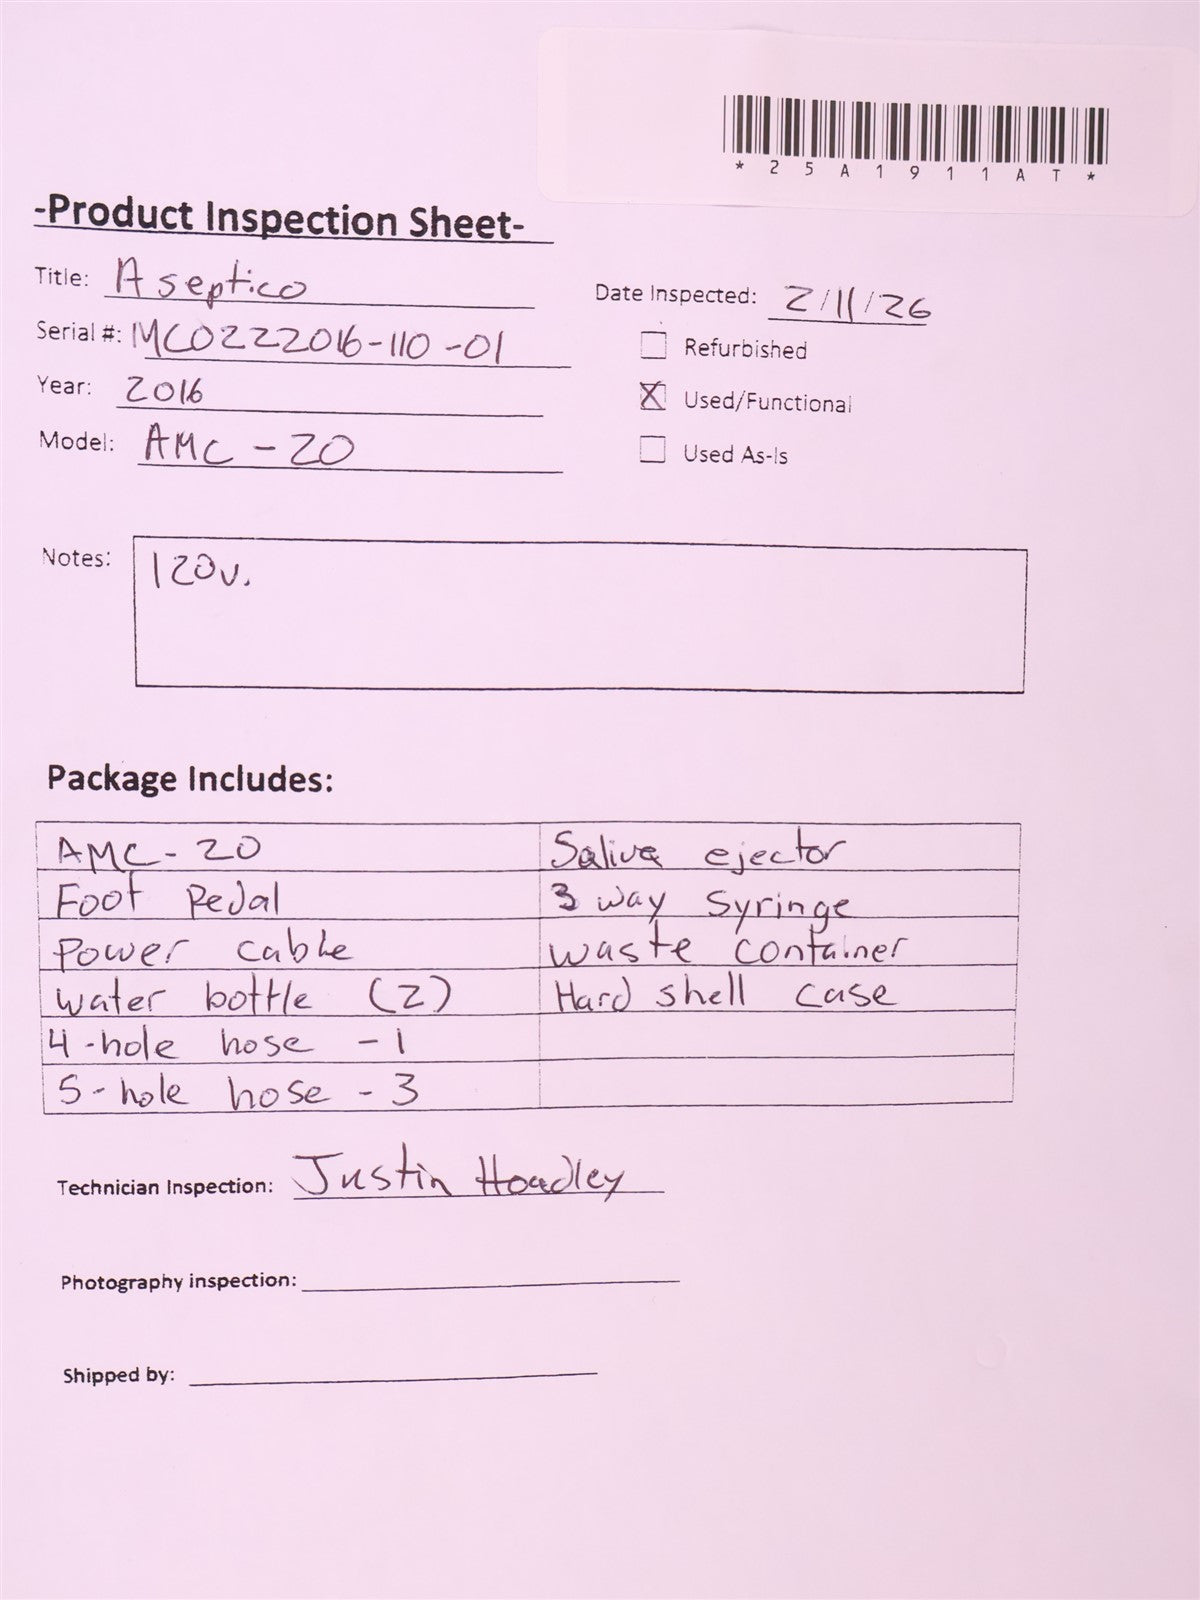 *25A1911AT*
-Product Inspection Sheet-
Title: Aseptico
Date Inspected: 2/11/26
Serial #: MC0222016-110-01
Refurbished
Year: 2016
X Used/Functional
Model: AMC-20
Used As-Is
Notes: 120v.
Package Includes:
AMC-20 Saliva ejector
Foot Pedal 3 way Syringe
Power cable waste container
water bottle (2) Hard shell case
4-hole hose - 1
5-hole hose - 3
Technician Inspection: Justin Hoadley
Photography inspection:
Shipped by: